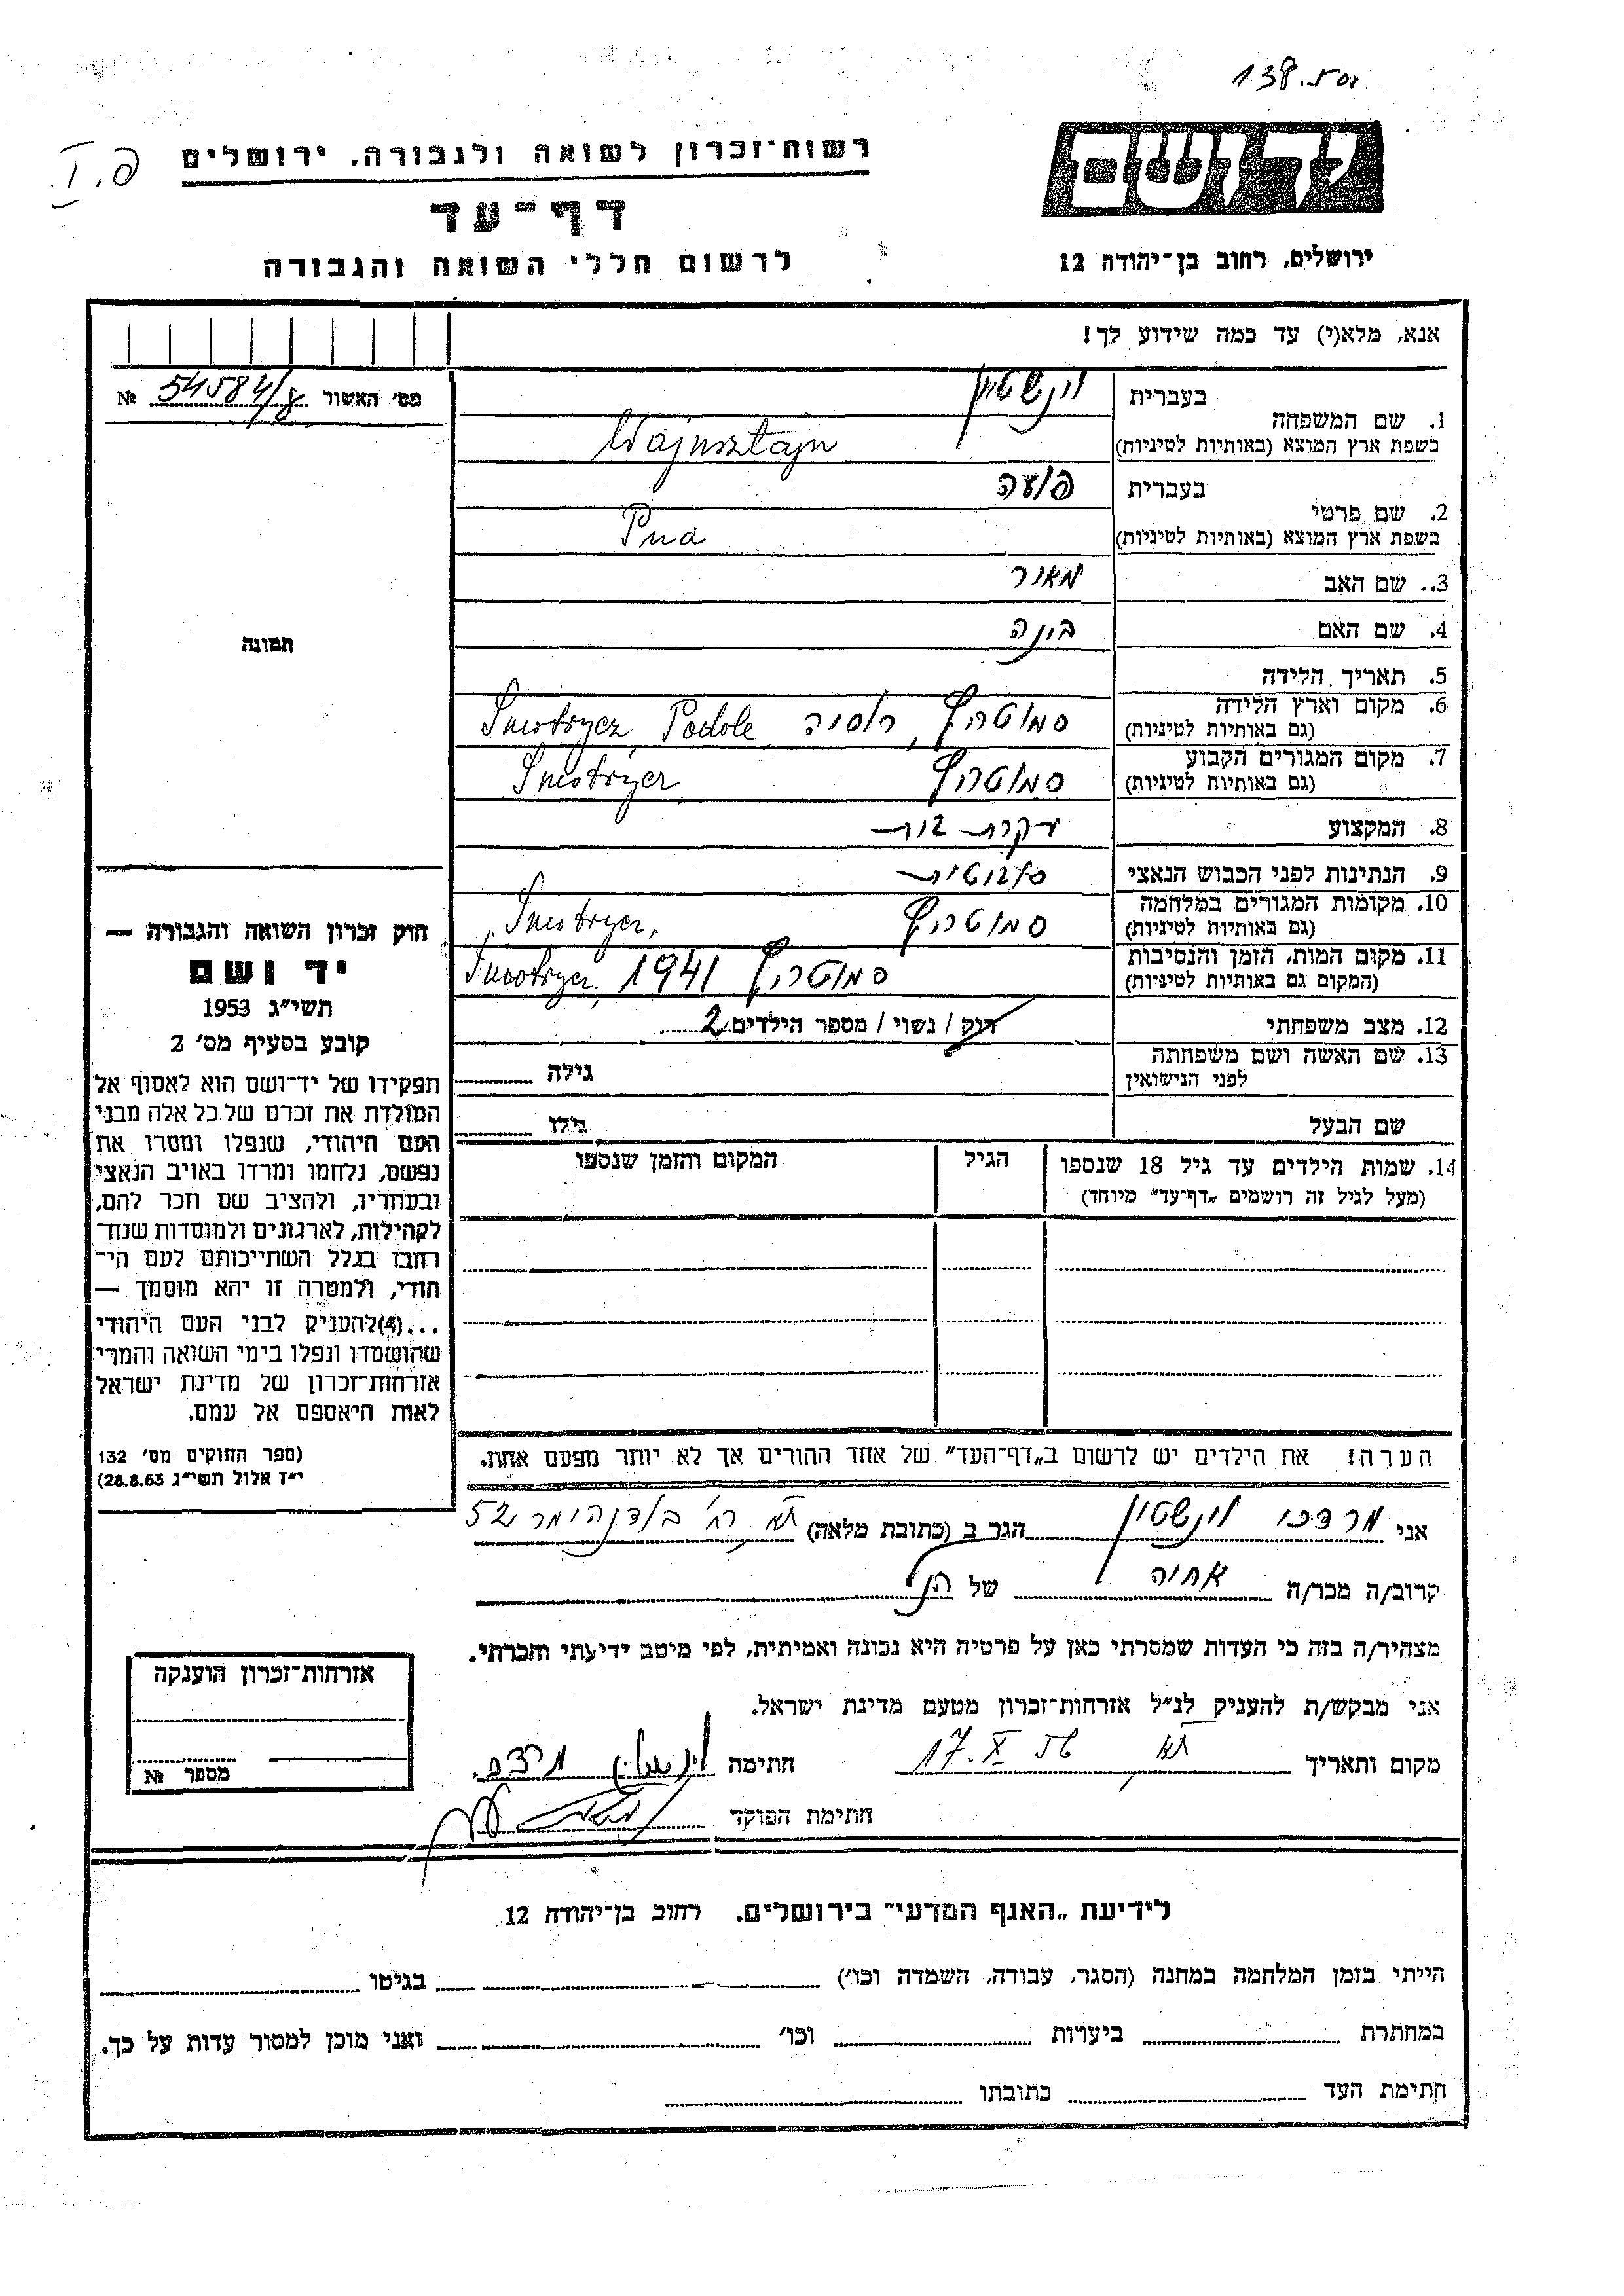 138.
פ. I
רשות־זכרון לשואה ולגבורה, ירושלים
דף־עד
לרשום חללי השואה והגבורה
יד ושם
ירושלים, רחוב בן־יהודה 12
אנא, מלא(י) עד כמה שידוע לך!
מס׳ האשור 54584/8 №
1. שם המשפחה
בעברית וינשטין
בשפת ארץ המוצא (באותיות לטיניות) Wajnsztajn
2. שם פרטי
בעברית פועה
בשפת ארץ המוצא (באותיות לטיניות) Pua
3. שם האב מאיר
4. שם האם בינה
5. תאריך הלידה
6. מקום וארץ הלידה סמוטריץ, רוסיה Smotrycz, Podole
(גם באותיות לטיניות)
7. מקום המגורים הקבוע סמוטריץ Smotrycz
(גם באותיות לטיניות)
8. המקצוע עקרת בית
9. הנתינות לפני הכבוש הנאצי סוביטית
10. מקומות המגורים במלחמה סמוטריץ Smotrycz
(גם באותיות לטיניות)
11. מקום המות, הזמן והנסיבות סמוטריץ 1941 Smotrycz
(המקום גם באותיות לטיניות)
12. מצב משפחתי רוק / נשוי / מספר הילדים 2
13. שם האשה ושם משפחתה גילה
לפני הנישואין
שם הבעל גילו
14. שמות הילדים עד גיל 18 שנספו הגיל המקום והזמן שנספו
(מעל לגיל זה רושמים „דף־עד” מיוחד)
תמונה
חוק זכרון השואה והגבורה —
יד ושם
תשי״ג 1953
קובע בסעיף מס׳ 2
תפקידו של יד־ושם הוא לאסוף אל
המולדת את זכרם של כל אלה מבני
העם היהודי, שנפלו ומסרו את
נפשם, נלחמו ומרדו באויב הנאצי
ובעוזריו, ולהציב שם וזכר להם,
לקהילות, לארגונים ולמוסדות שנח־
רבו בגלל השתייכותם לעם הי־
הודי, ולמטרה זו יהא מוסמך —
...(4)להעניק לבני העם היהודי
שהושמדו ונפלו בימי השואה והמרי
אזרחות־זכרון של מדינת ישראל
לאות היאספם אל עמם.
(ספר החוקים מס׳ 132
י״ז אלול תשי״ג 28.8.53)
הערה! את הילדים יש לרשום ב„דף־העד” של אחד ההורים אך לא יותר מפעם אחת.
אני מרדכי וינשטין הגר ב (כתובת מלאה) תא רח׳ 52
קרוב/ה מכר/ה אחיה של הנ״ל
מצהיר/ה בזה כי העדות שמסרתי כאן על פרטיה היא נכונה ואמיתית, לפי מיטב ידיעתי והכרתי.
אני מבקש/ת להעניק לנ״ל אזרחות־זכרון מטעם מדינת ישראל.
מקום ותאריך תא 17.X 56 חתימה וינשטין מרדכי
חתימת הפוקד
אזרחות־זכרון הוענקה
מספר №
לידיעת „האגף המדעי” בירושלים, רחוב בן־יהודה 12
הייתי בזמן המלחמה במחנה (הסגר, עבודה, השמדה וכו׳) בגיטו
במחתרת ביערות וכו׳ ואני מוכן למסור עדות על כך.
חתימת העד כתובתו